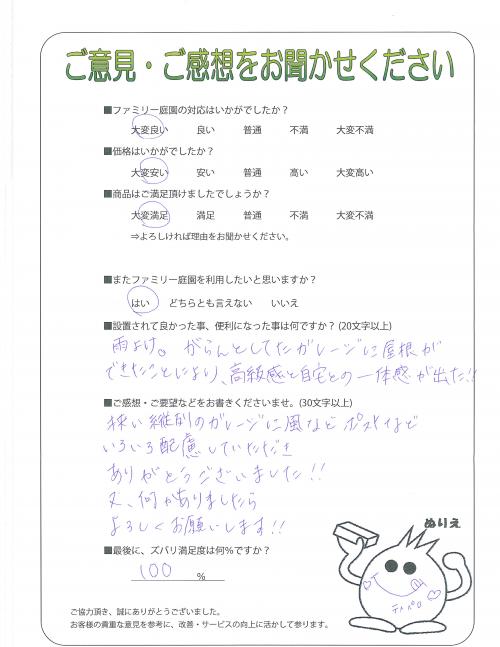 ご意見・ご感想をお聞かせください
■ファミリー庭園の対応はいかがでしたか？
大変良い 良い 普通 不満 大変不満
■価格はいかがでしたか？
大変安い 安い 普通 高い 大変高い
■商品はご満足頂けましたでしょうか？
大変満足 満足 普通 不満 大変不満
⇒よろしければ理由をお聞かせください。
■またファミリー庭園を利用したいと思いますか？
はい どちらとも言えない いいえ
■設置されて良かった事、便利になった事は何ですか？(20文字以上)
雨よけ。がらんとしてたガレージに屋根が
できたことにより、高級感と自宅との一体感が出た!!
■ご感想・ご要望などをお書きくださいませ。(30文字以上)
狭い縦列のガレージに風などポストなど
いろいろ配慮していただき
ありがとうございました!!
又、何かありましたら
よろしくお願いします!!
ぬりえ
■最後に、ズバリ満足度は何％ですか？
100 %
ご協力頂き、誠にありがとうございました。
お客様の貴重な意見を参考に、改善・サービスの向上に活かして参ります。